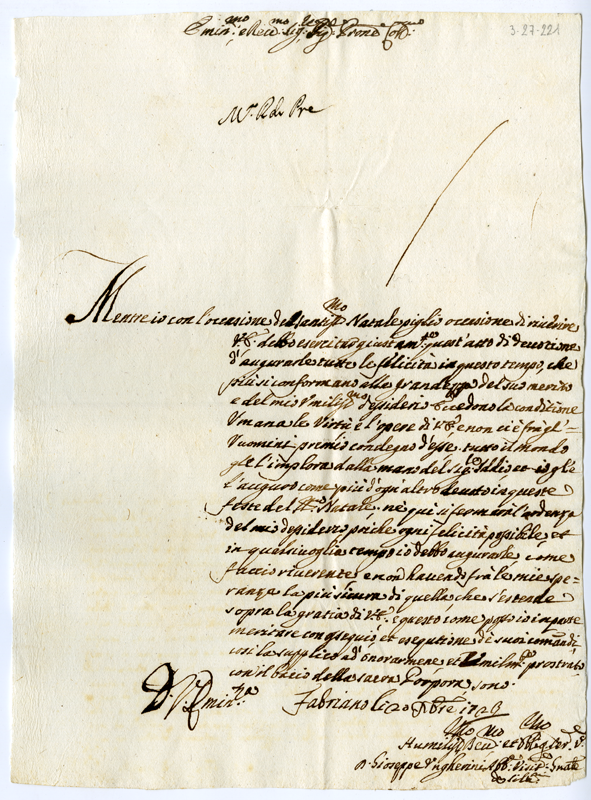 3-27-221
Emin.mo e Rev.mo Sig.r Sig.r Prone Col.mo
Mentre io con l'occasione del Santiss.mo Natale piglio occasione di riverire
V.E. debbo esercitar giustam.te quest'atto di devotione
d'augurarle tutte le felicità in questo tempo, che
più si conformano alla grandezza del suo merito
e del mio Umiliss.mo desiderio Eccedono la conditione
Umana le Virtù e l'opere di V.E. e non ci è fra gl'=
Uomini premio condegno d'esse. tutto il mondo
gle l'implora dalla mano del Sig.re Iddio et io gle
l'auguro come più d'ogn'altro devoto in queste
feste del S.mo Natale. ne qui si fermarà l'ardenza
del mio desiderio poiche ogni felicità possibile et
in qualsivoglia tempo io debbo augurarle come
faccio riverente e non havendo frà le mie spe=
ranze la più sicura di quella che s'estende
sopra la gratia di V.E. e questo come posso io
meritare con ossequio, et esegutione de suoi comandi
così la supplico ad honorarmene et Umilm.te prostrato
con il bacio della sacra Porpora sono.
D. V. Emin.za
Fabriano li 20 Xbre 1728
Humiliss.mo Dev.mo et Oblig.mo Ser. V.o
D. Gioseppe Ungherini Abb. Visit. Gnale